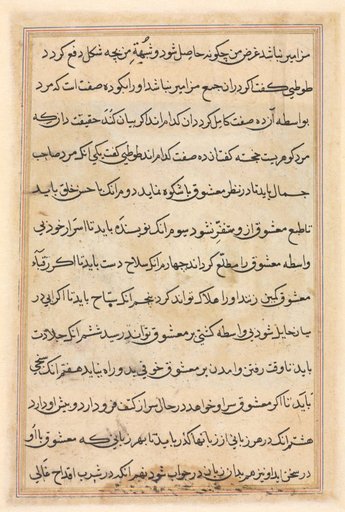 مزامیر نباشد غرض من چگونه حاصل شود و شبههٔ من بچه شکل دفع کردد
طوطی کفت اکر دران جمع مزامیر نباشد او را بکو ده صفت است که مرد
بواسطه آن ده صفت کامل کردد ان کدام اند اکر بیان کند حقیقت دان که
مرد کوهریست خجسته کفت ان ده صفت کدام اند طوطی کفت یکی انکه مرد صاحب
جمال باید تا در نظر معشوق باشکوه نماید دوم انکه با حسن خلق باید
تا طبع معشوق از و متنفر نشود سیوم انکه نویسنده باید تا اسرار خود بی
واسطه معشوق را مطلع کرداند چهارم انکه سلاح دست باید تا اکر رقبآء
معشوق کمین زنند او را هلاک تواند کرد پنجم انکه سباح باید تا اکر ابی در
میان حایل شود بی واسطه کشتی بر معشوق تواند رسید ششم انکه جلادت
باید تا وقت رفتن و امدن بر معشوق خوفی بدو راه نیابد هفتم انکه سخی
باید تا اکر معشوق سر او خواهد در حال سر از کتف فرود ارد و پیش او دارد
هشتم انکه در هر زبانی از زبانها کذر باید تا بهر زبانی که معشوق با او
در سخن اید او نیز هم بدان زبان در جواب شود نهم انکه در شرب اقداح غالی